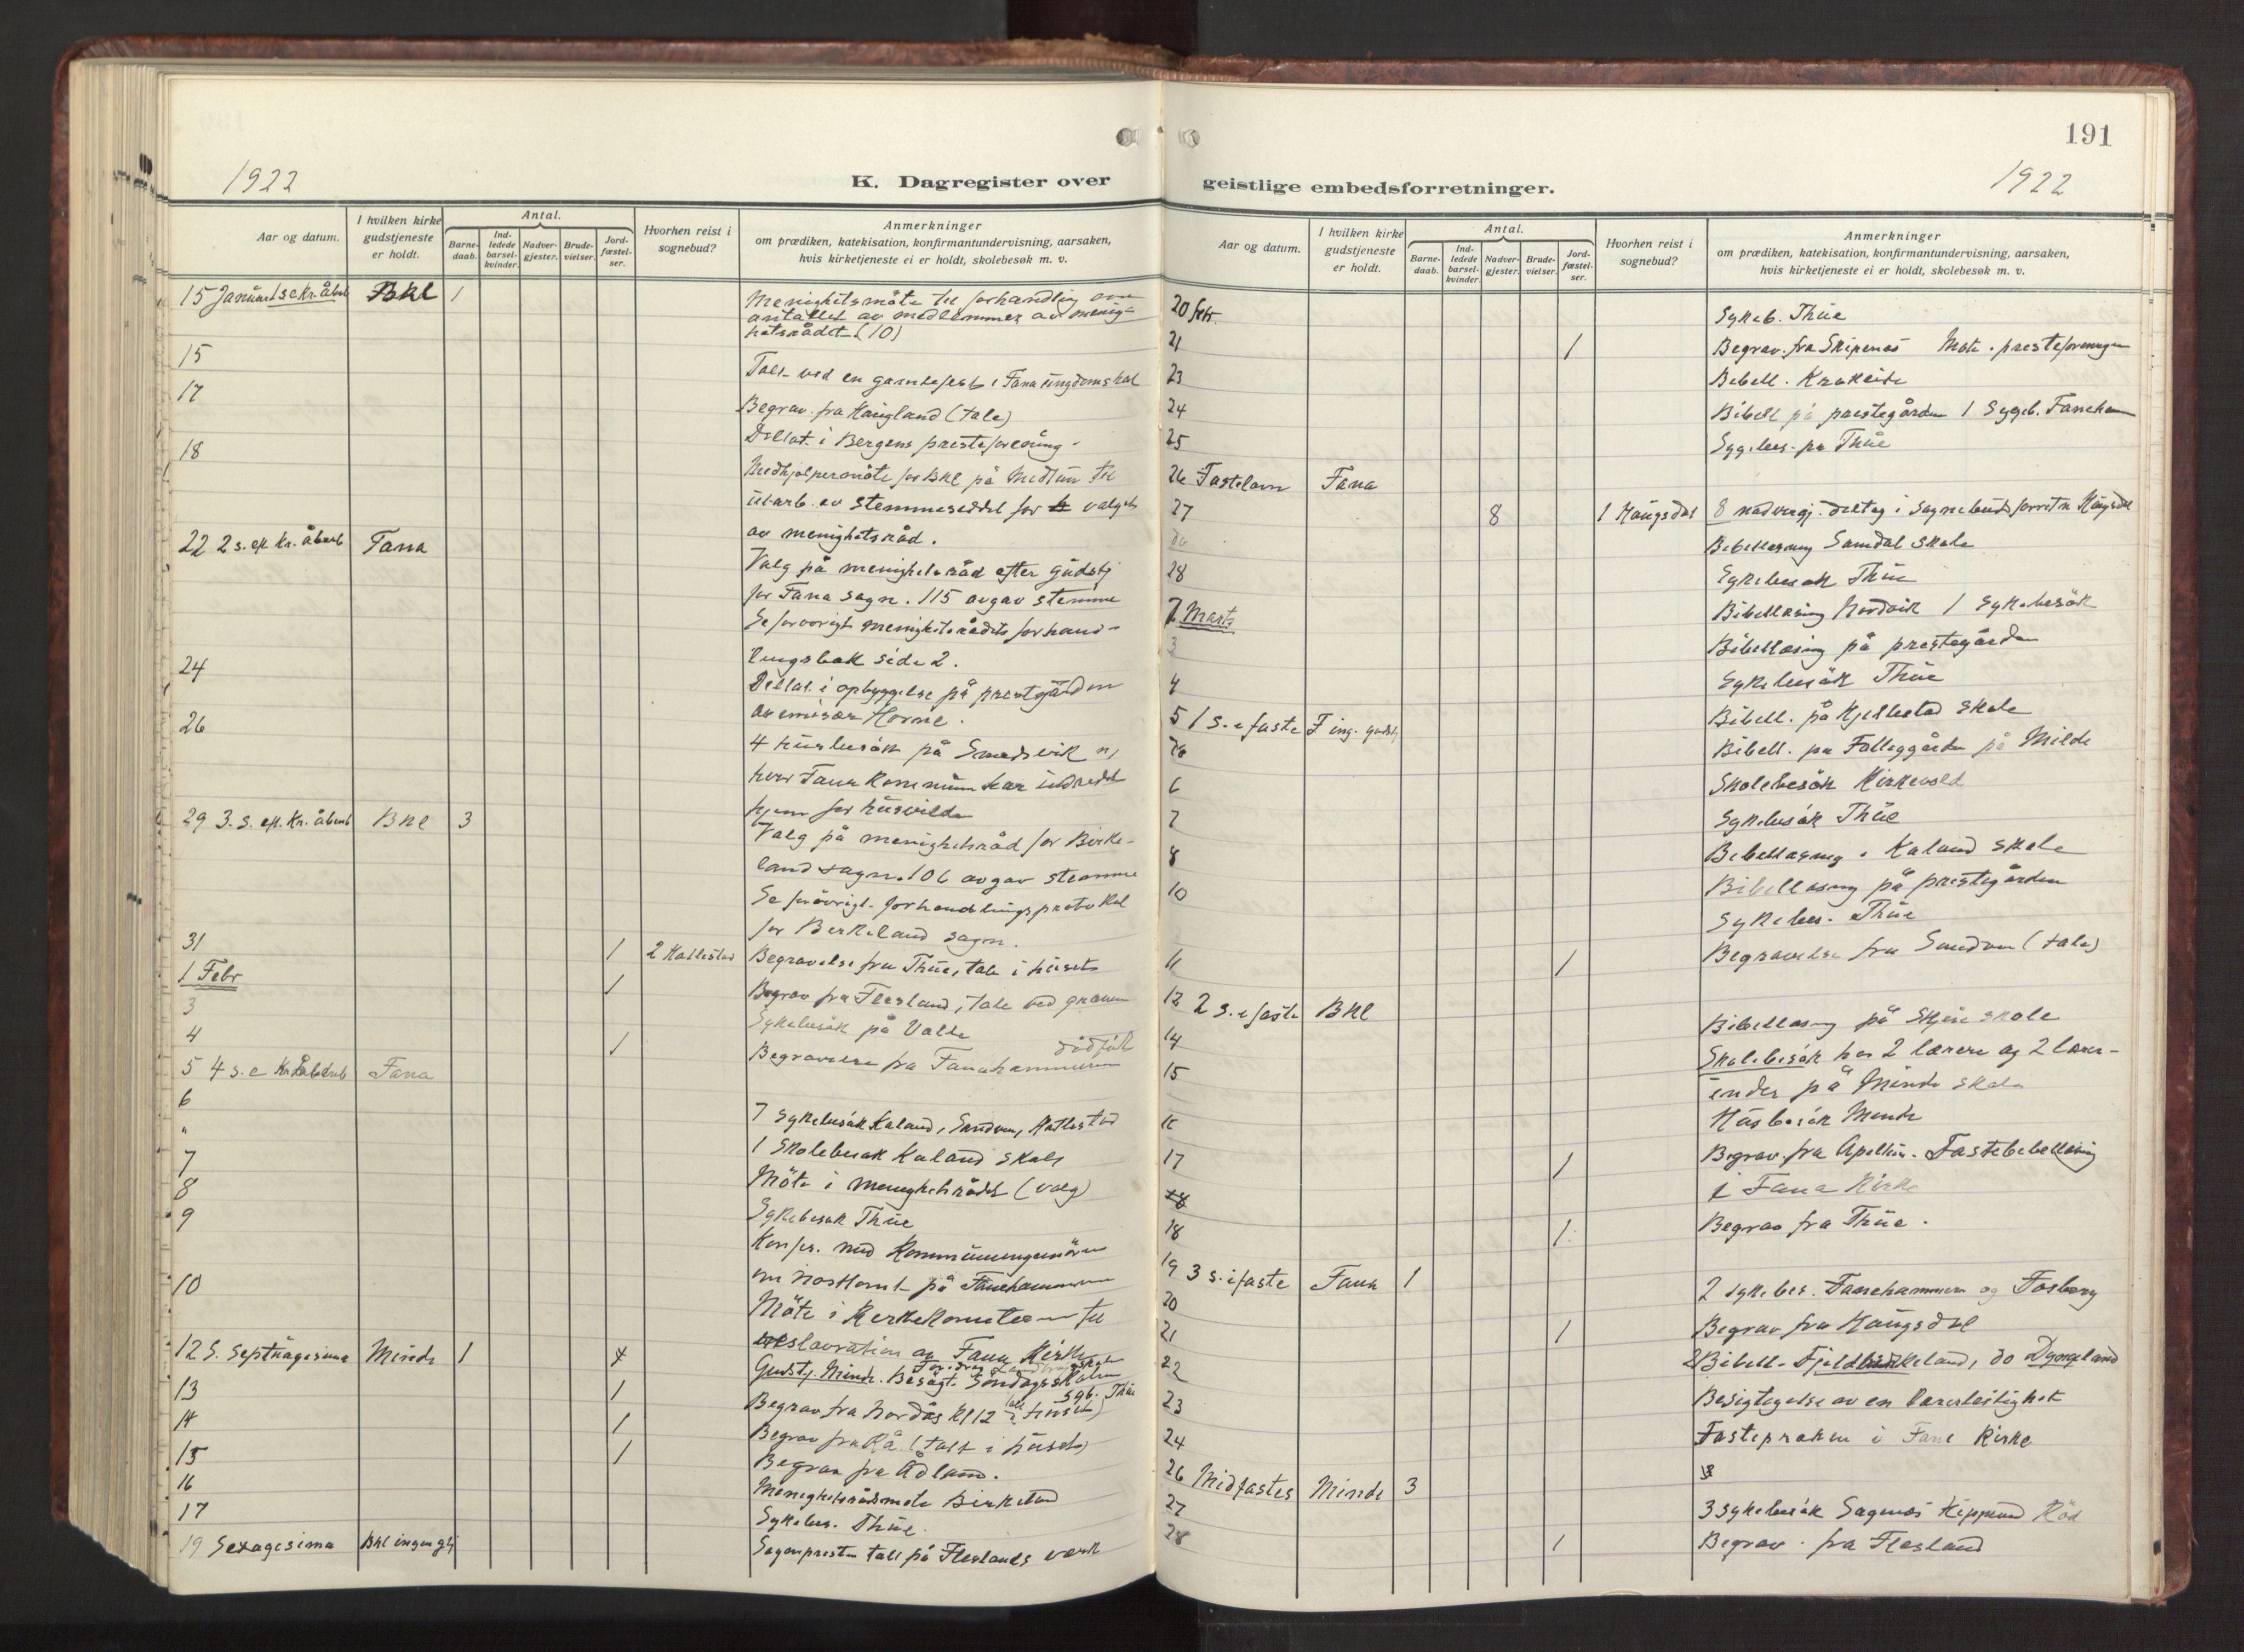 1922
K. Dagregister over
Aar og datum.
I hvilken kirke
gudstjeneste
er holdt.
Antal.
Barne-
daab.
Ind-
ledede
barsel-
kvinder.
Nadver-
gjester.
Brude-
vielser.
Jord-
fæstel-
ser.
Hvorhen reist i
sognebud?
Anmerkninger
om prædiken, katekisation, konfirmantundervisning, aarsaken,
hvis kirketjeneste ei er holdt, skolebesøk m. v.
15 Januar 1 s e Kr. åbenb Bkl 1 Menighetsmöte til forhandling om
antallet av medlemmer av menig-
hetsrådet (10)
15 Tale ved en gamlefest i Fana ungdomshal
17 Begrav. fra Haugland (tale)
Deltat i Bergens presteforening.
18 Medhjælpermöte for Bkl på Midtun til
utarb. av stemmeseddel for valget
av menighetsråd.
22 2 s. eft Kr. åbenb Fana Valg på menighetsråd efter gudstj
for Fana sogn. 115 avgav stemme
Se forövrigt menighetsrådets forhand-
lingsbok side 2.
24 Deltat i opbyggelse på prestegården
av emisær Horne.
26 4 husbesök på Smedsvik
hvor Fana Kommune har indredet
hjem for husvilde
29 3. s. eft. Kr. åbenb Bkl 3 Valg på menighetsråd for Birke-
land sogn. 106 avgav stemme
Se forövrigt forhandlingsprotokol
for Birkeland sogn.
31 1 2 Hatlestad Begravelse fra Thue, tale i huset
1 Febr 1 Begrav fra Flesland, tale ved graven
3 Sykebesök på Valle
4 1 Begravelse fra Fanahammeren dödföt
5 4 s. e Kr. åbenb Fana
6 7 sykebesök Kaland, Sandven, Hatlestad
" 1 Skolebesök Kaland skole
7 Möte i menighetsrådet (valg)
8 Sykebesök Thue
9 Konfer. med Kommuneingeniören
om på Fanehammeren
10 Möte i Kirkekomiteen til
restauration av Fana Kirke
12 S. Septuagesima Minde 1 Gudstj. Minde. Besögt Söndagsskolen
13 1 Begrav fra Nordås kl 12 (tale i huset) sgb. Thue
14 1 Begrav fra Rå (tale i huset)
15 1 Begrav fra Ådland.
16 Menighetsrådsmöte Birkeland
17 Sykebes. Thue.
19 Sexagesima Bkl ingen gtj Sognepresten tale på Fleslands værk
191
geistlige embedsforretninger.
1922
Aar og datum.
I hvilken kirke
gudstjeneste
er holdt.
Antal.
Barne-
daab.
Ind-
ledede
barsel-
kvinder.
Nadver-
gjester.
Brude-
vielser.
Jord-
fæstel-
ser.
Hvorhen reist i
sognebud?
Anmerkninger
om prædiken, katekisation, konfirmantundervisning, aarsaken,
hvis kirketjeneste ei er holdt, skolebesøk m. v.
20 febr. Sykeb. Thue
21 1 Begrav. fra Skipenes Möte i presteforeningen
23 Bibell. Krokeide
24 Bibell på prestegården 1 Sygeb. Faneham
25 Sygebes. på Thue
26 Fastelavn Fana
27 8 1 Haugsdal 8 nadvergj. deltog i Sognebudsforretn Haugsdal
do Bibellesning Samdal skole
28 Sykebesök Thue
2 Marts Bibellæsning Nordvik 1 Sykebesök
3 Bibellæsning på prestegården
4 Sykebesök Thue
5 1 s. i faste F ing. gudstj Bibell. på Hjellestad skole
do Bibell. på Fattiggården på Milde
6 Skolebesök Kirkevold
7 Sykebesök Thue
8 Bibellæsning i Kaland skole
10 Bibellæsning på prestegården
Sykebes. Thue
11 1 Begravelse fra Sandven (tale)
12 2 s. i faste Bkl Bibellæsning på Skjen skole
14 Skolebesök hos 2 lærere og 2 lærer-
15 inder på Minde skole
16 Husbesök Minde
17 1 Begrav. fra Apeltun. Fastebibellæsning
i Fana Kirke
18 1 Begrav fra Thue.
19 3 s. i faste Fana 1 2 sykebes. Fanehammeren og Fosberg
20
21 1 Begrav fra Haugsdal
22 2 Bibell. Fjeldbirkeland, do Dyngeland
23 Besigtigelse av en lærerleilighet
24 Fasteprœken i Fane Kirke
26 Midfaste s Minde 3
27 3 sykebesök Sagenes Röd
28 1 Begrav. fra Flesland